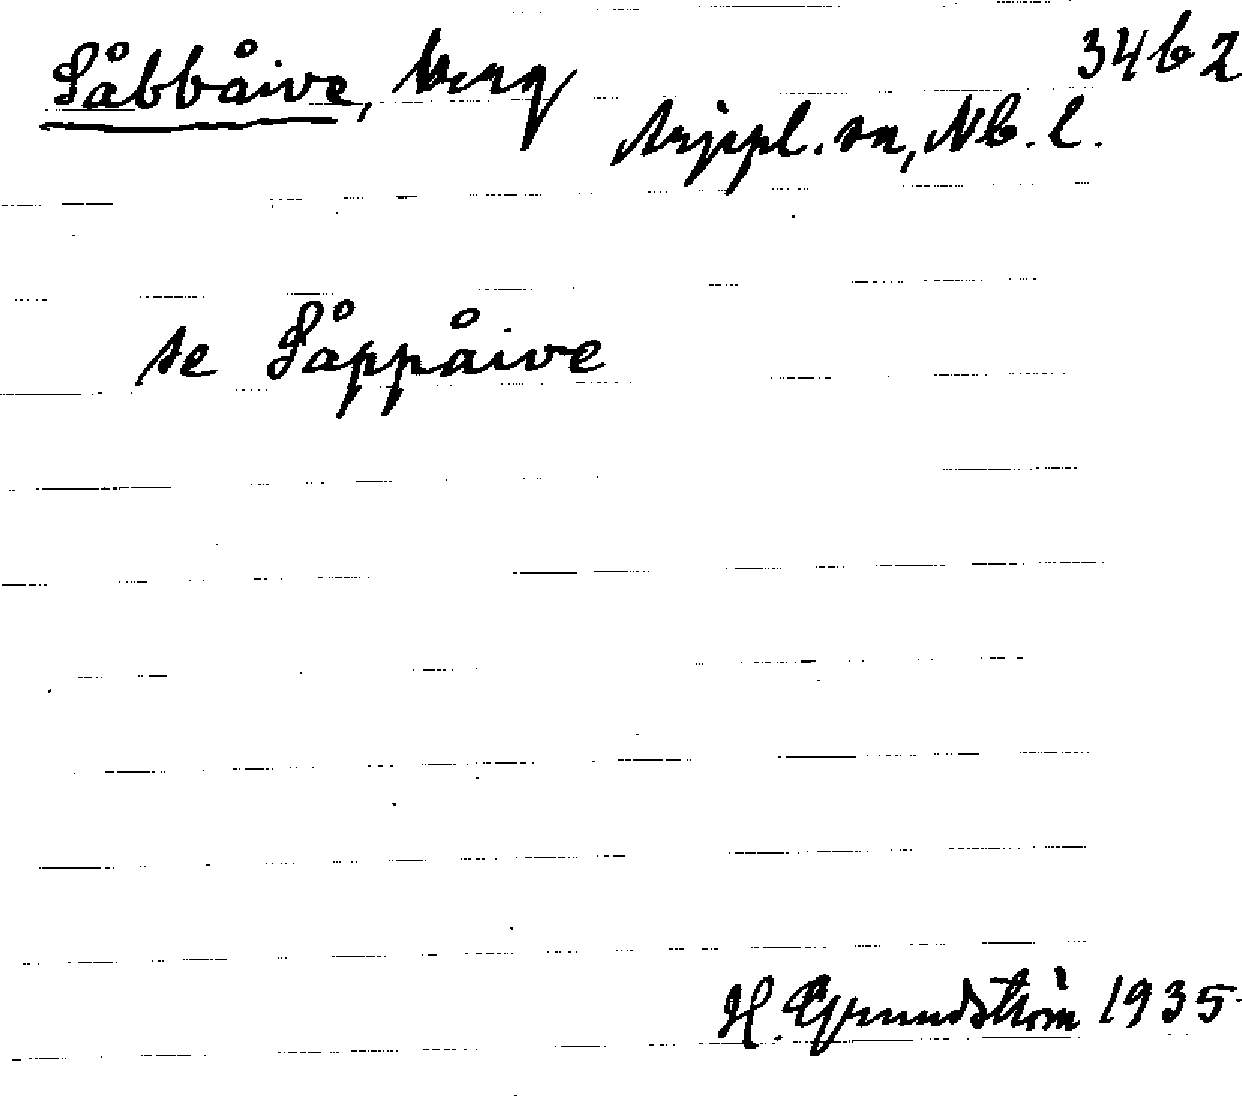 Såbbåive, berg
34b2
Arjepl. sn, Nb. l.
se Såppåive
H. Grundström 1935